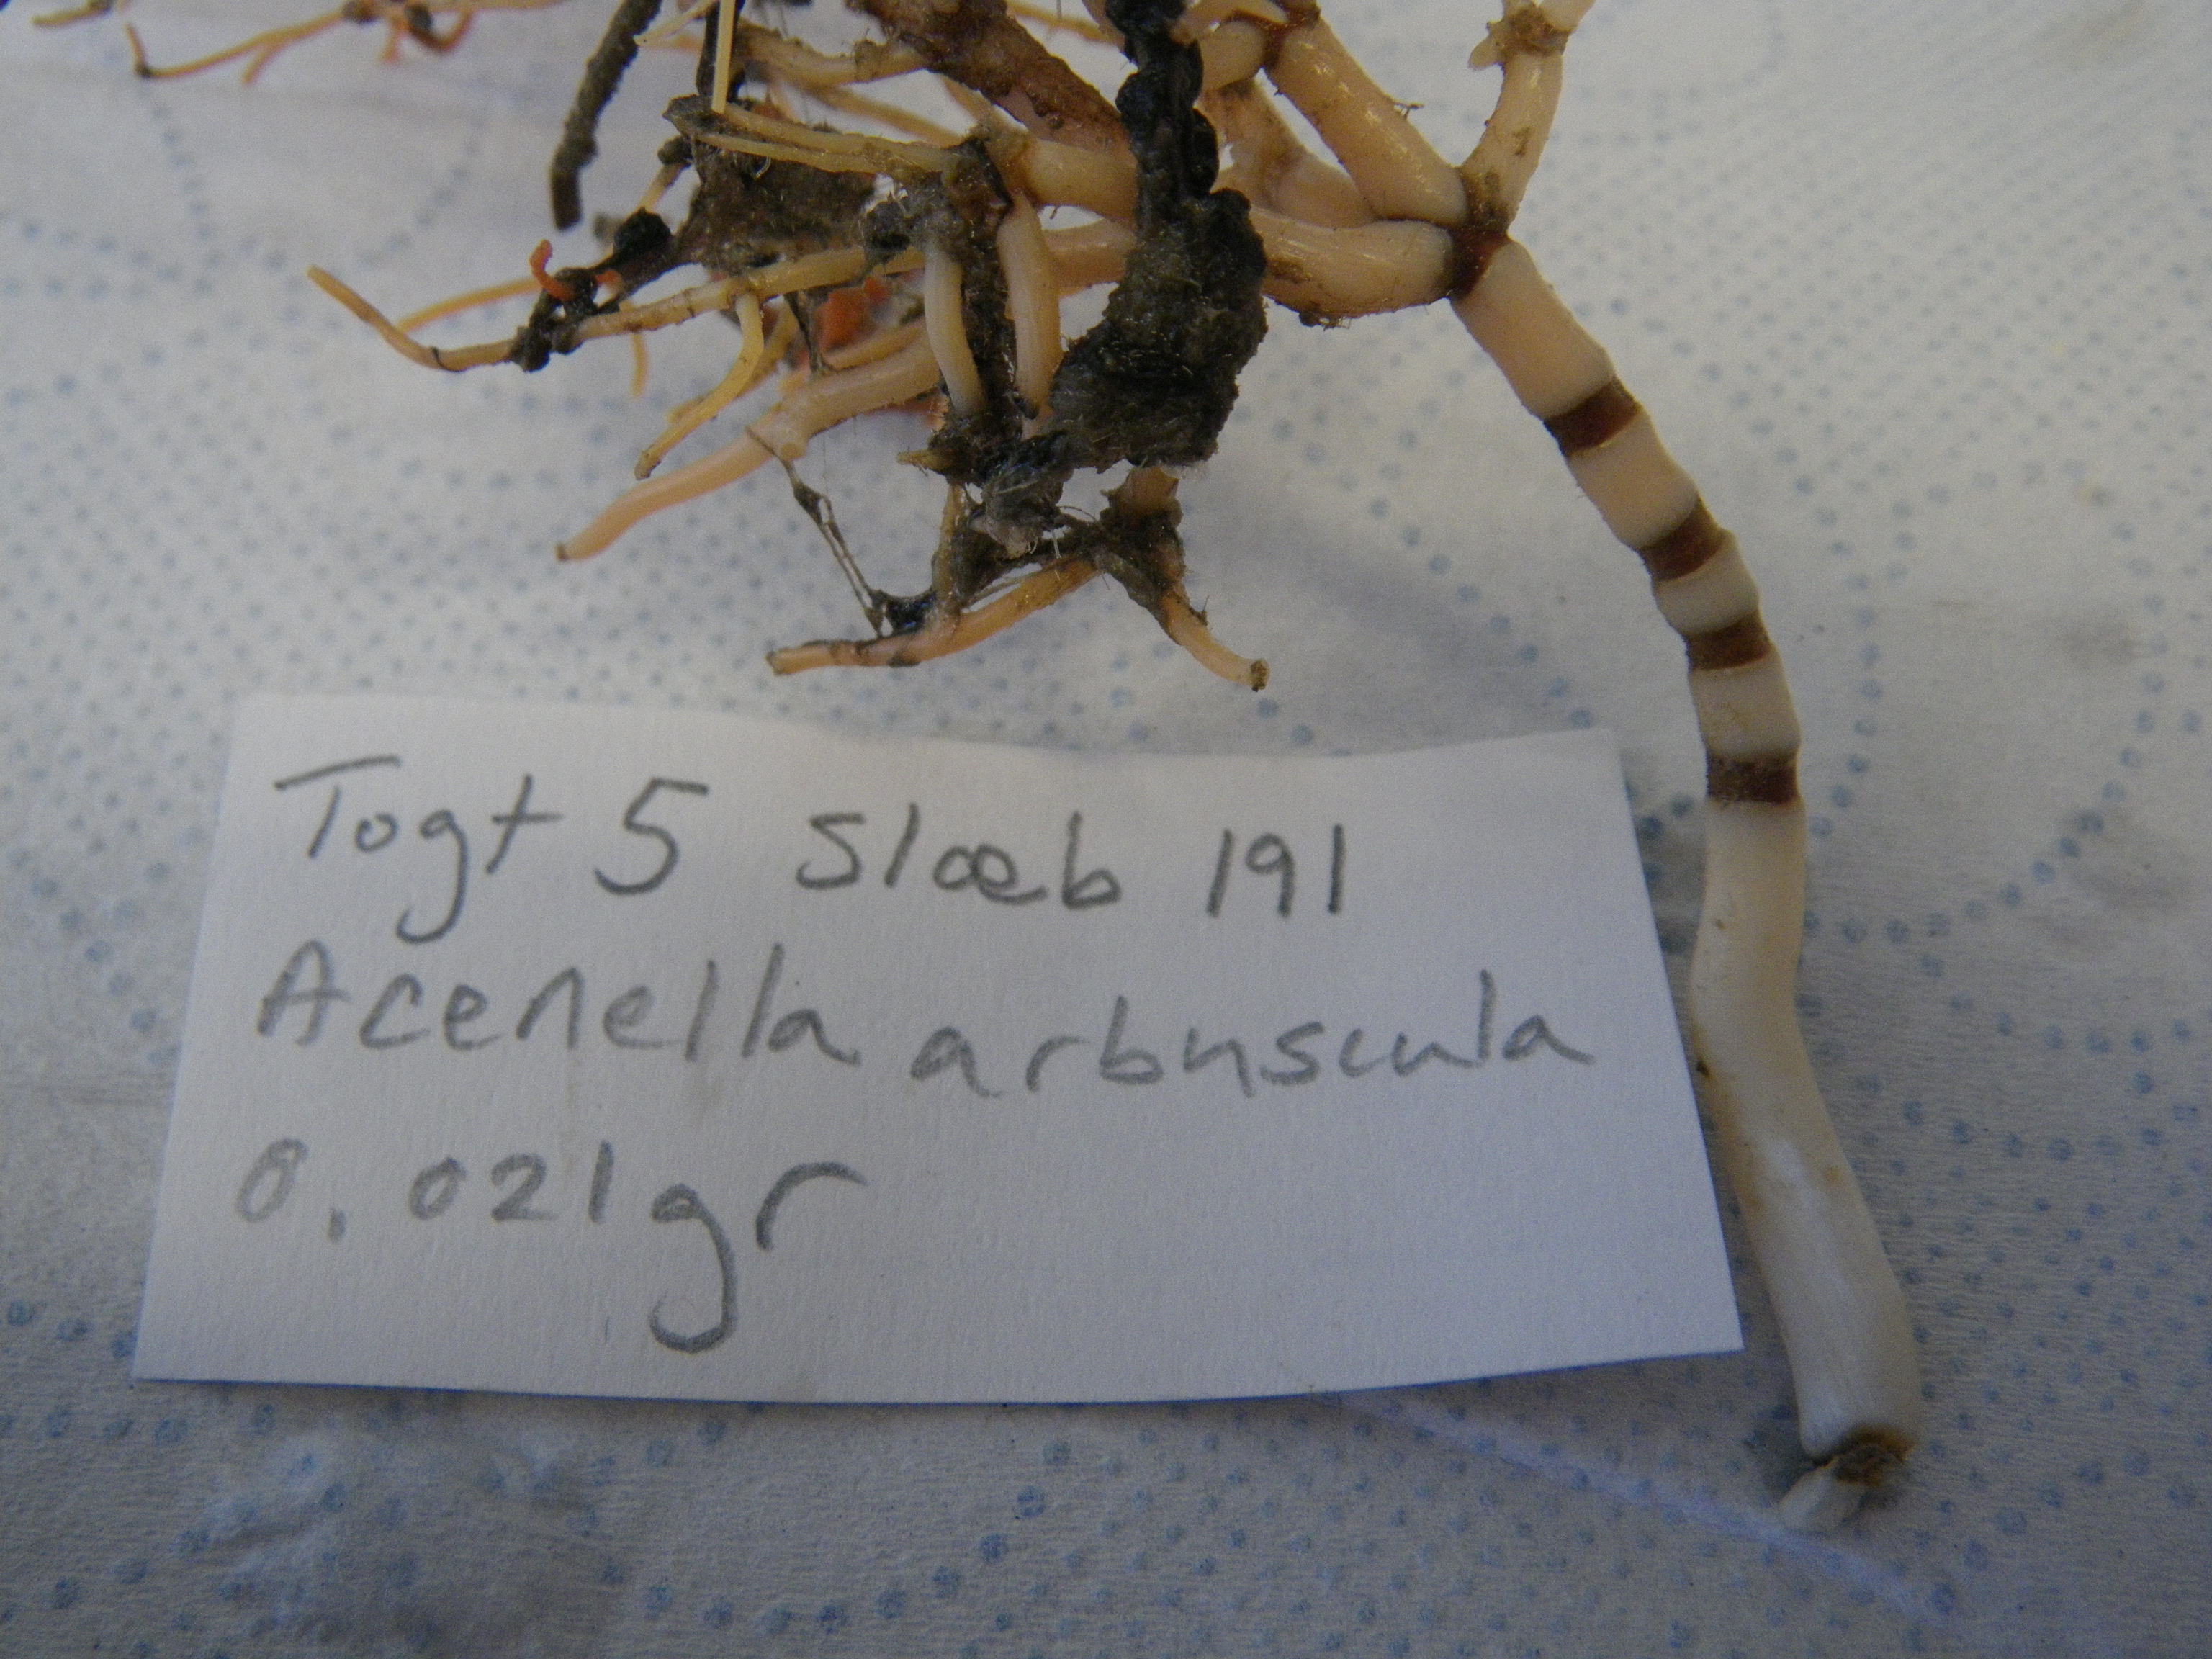 Togt 5 Slæb 191
Acenella arbuscula
0.021gr